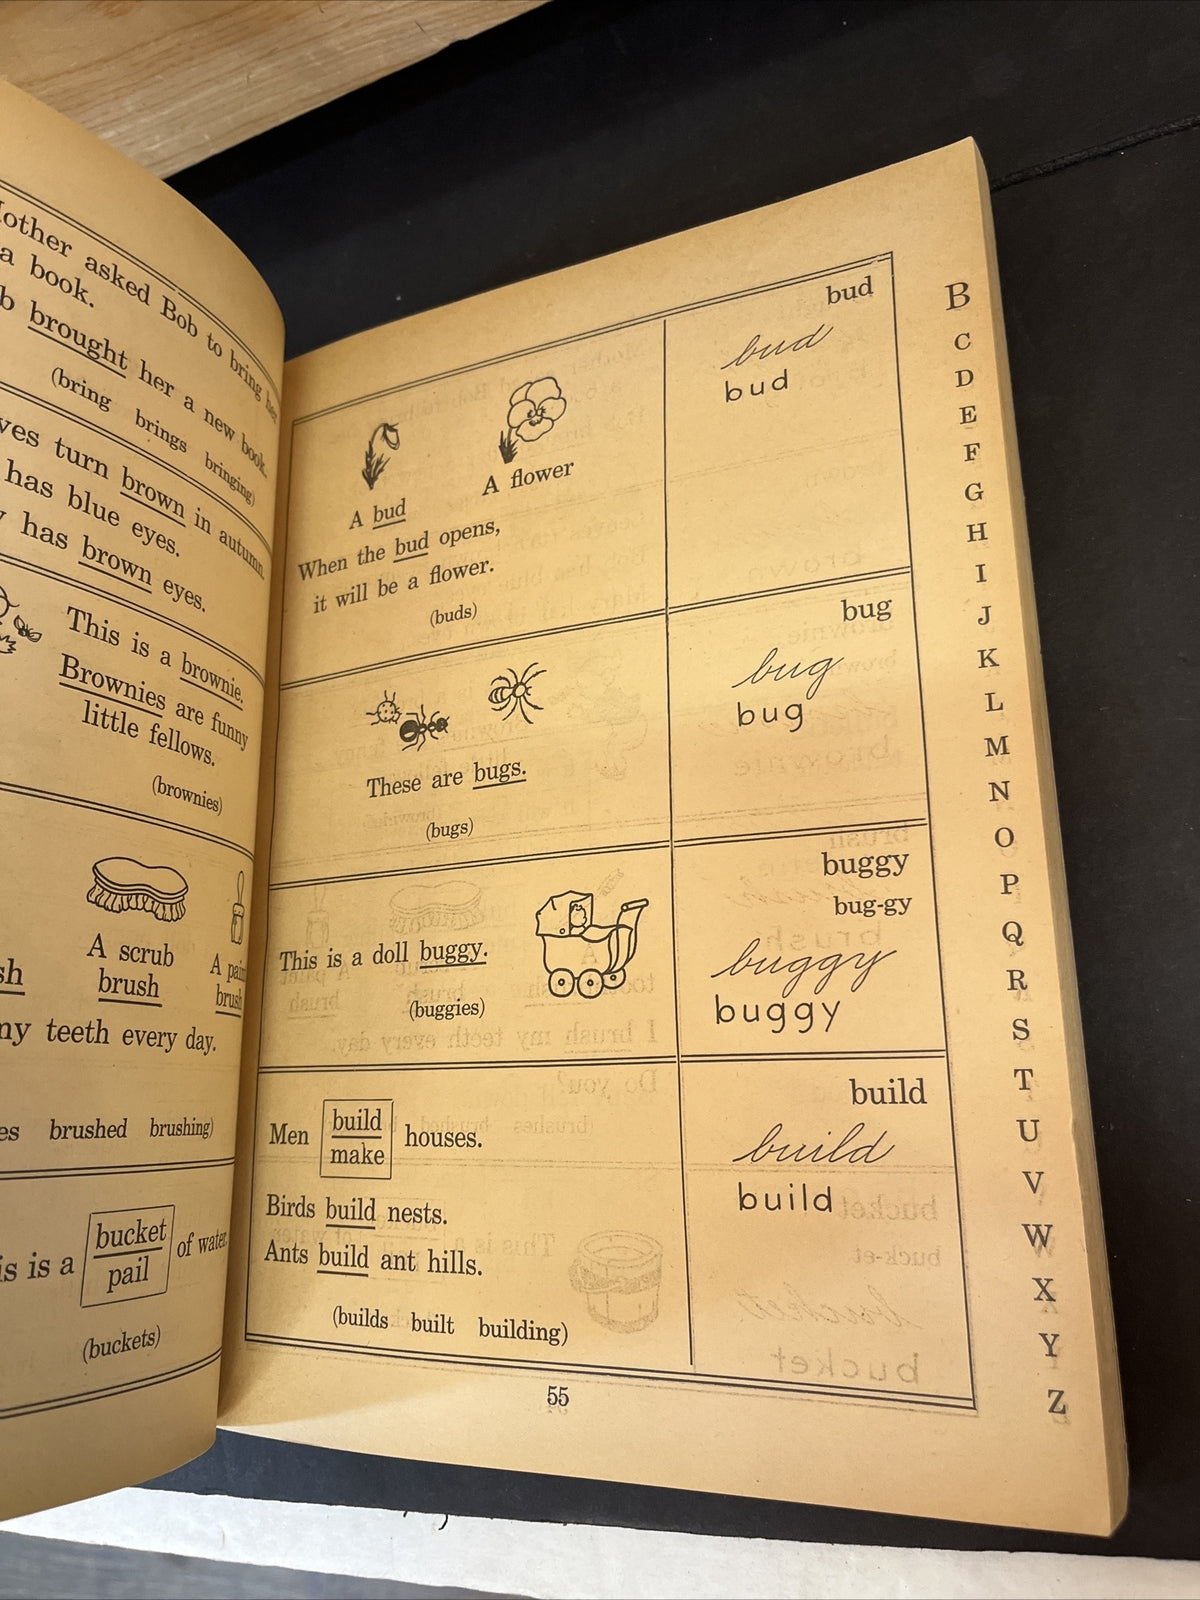 other asked Bob to bring her
a book.
brought her a new book.
(bring brings bringing)
turn brown in autumn.
has blue eyes.
has brown eyes.
This is a brownie.
Brownies are funny
little fellows.
(brownies)
A scrub
brush
A
brush
teeth every day.
brushed brushing)
is a
bucket
pail
of water.
(buckets)
A bud
A flower
When the bud opens,
it will be a flower.
(buds)
bud
bud
bud
These are bugs.
(bugs)
bug
bug
bug
This is a doll buggy.
(buggies)
buggy
bug-gy
buggy
buggy
Men
build
make
houses.
Birds build nests.
Ants build ant hills.
(builds built building)
build
build
build
55
B
C
D
E
F
G
H
I
J
K
L
M
N
O
P
Q
R
S
T
U
V
W
X
Y
Z